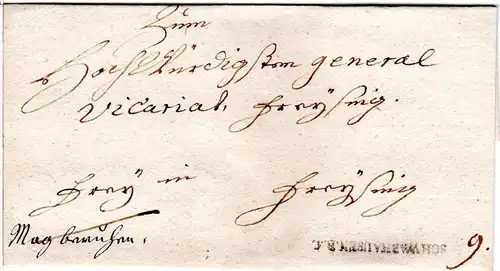 Zum
Hochwürdigsten general
Vicariat, Freÿsing.
Frey in Freÿsing
Mag beruhen.
SCHWABHAUSEN.R.4.
9.